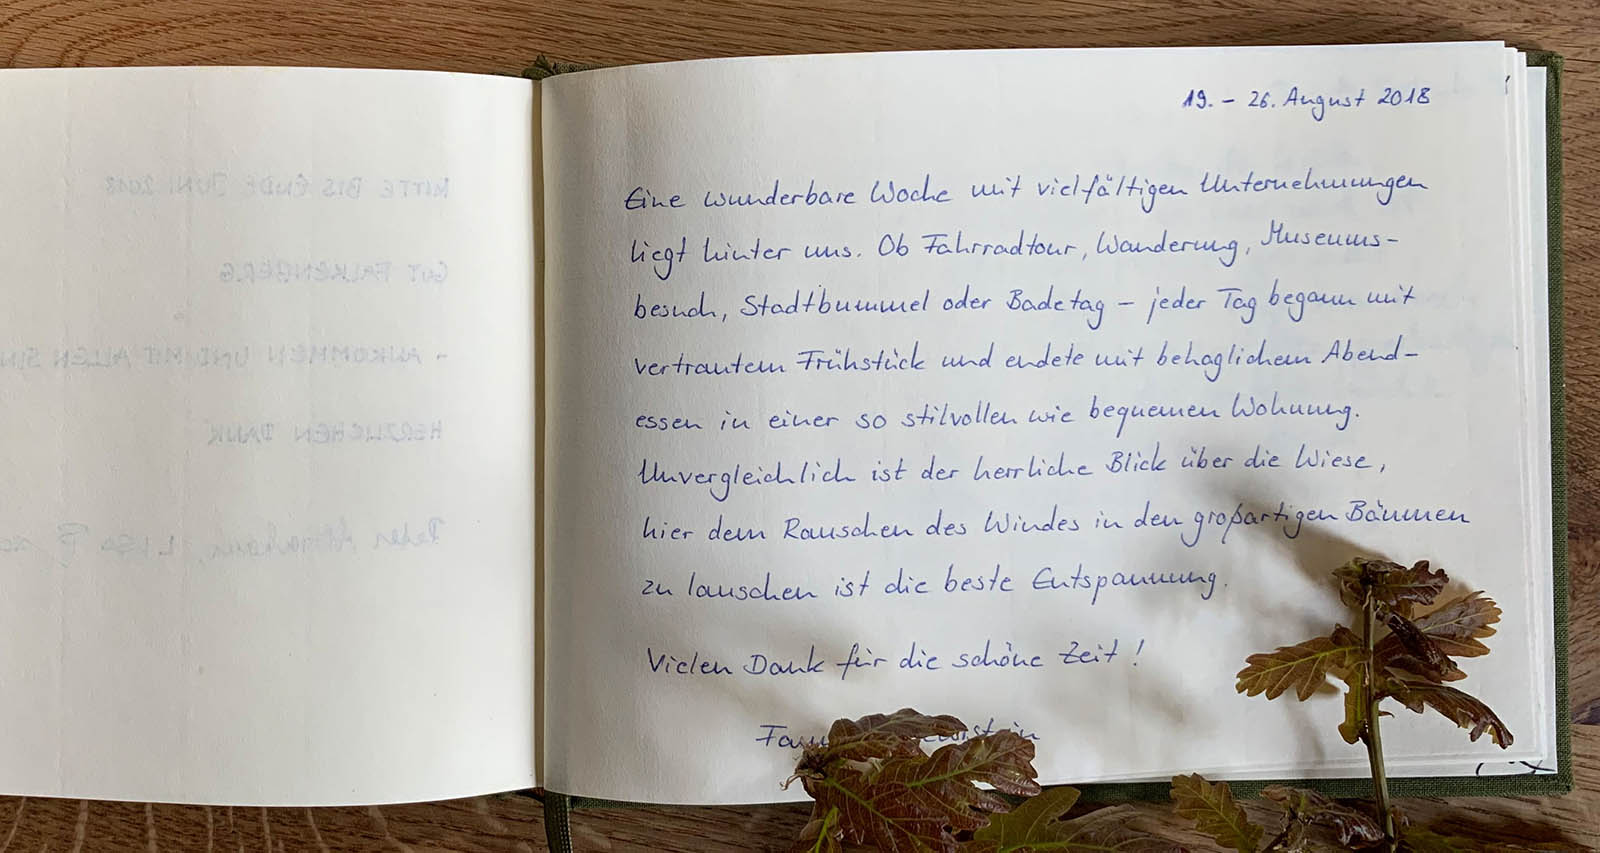 MITTE BIS ENDE JUNI 2018
GUT FALKENBERG
- ANKOMMEN UND MIT ALLEN SIN
HERZLICHEN DANK
19. - 26. August 2018
Eine wunderbare Woche mit vielfältigen Unternehmungen
liegt hinter uns. Ob Fahrradtour, Wanderung, Museums-
besuch, Stadtbummel oder Badetag – jeder Tag begann mit
vertrautem Frühstück und endete mit behaglichem Abend-
essen in einer so stilvollen wie bequemen Wohnung.
Unvergleichlich ist der herrliche Blick über die Wiese,
hier dem Rauschen des Windes in den großartigen Bäumen
zu lauschen ist die beste Entspannung.
Vielen Dank für die schöne Zeit!